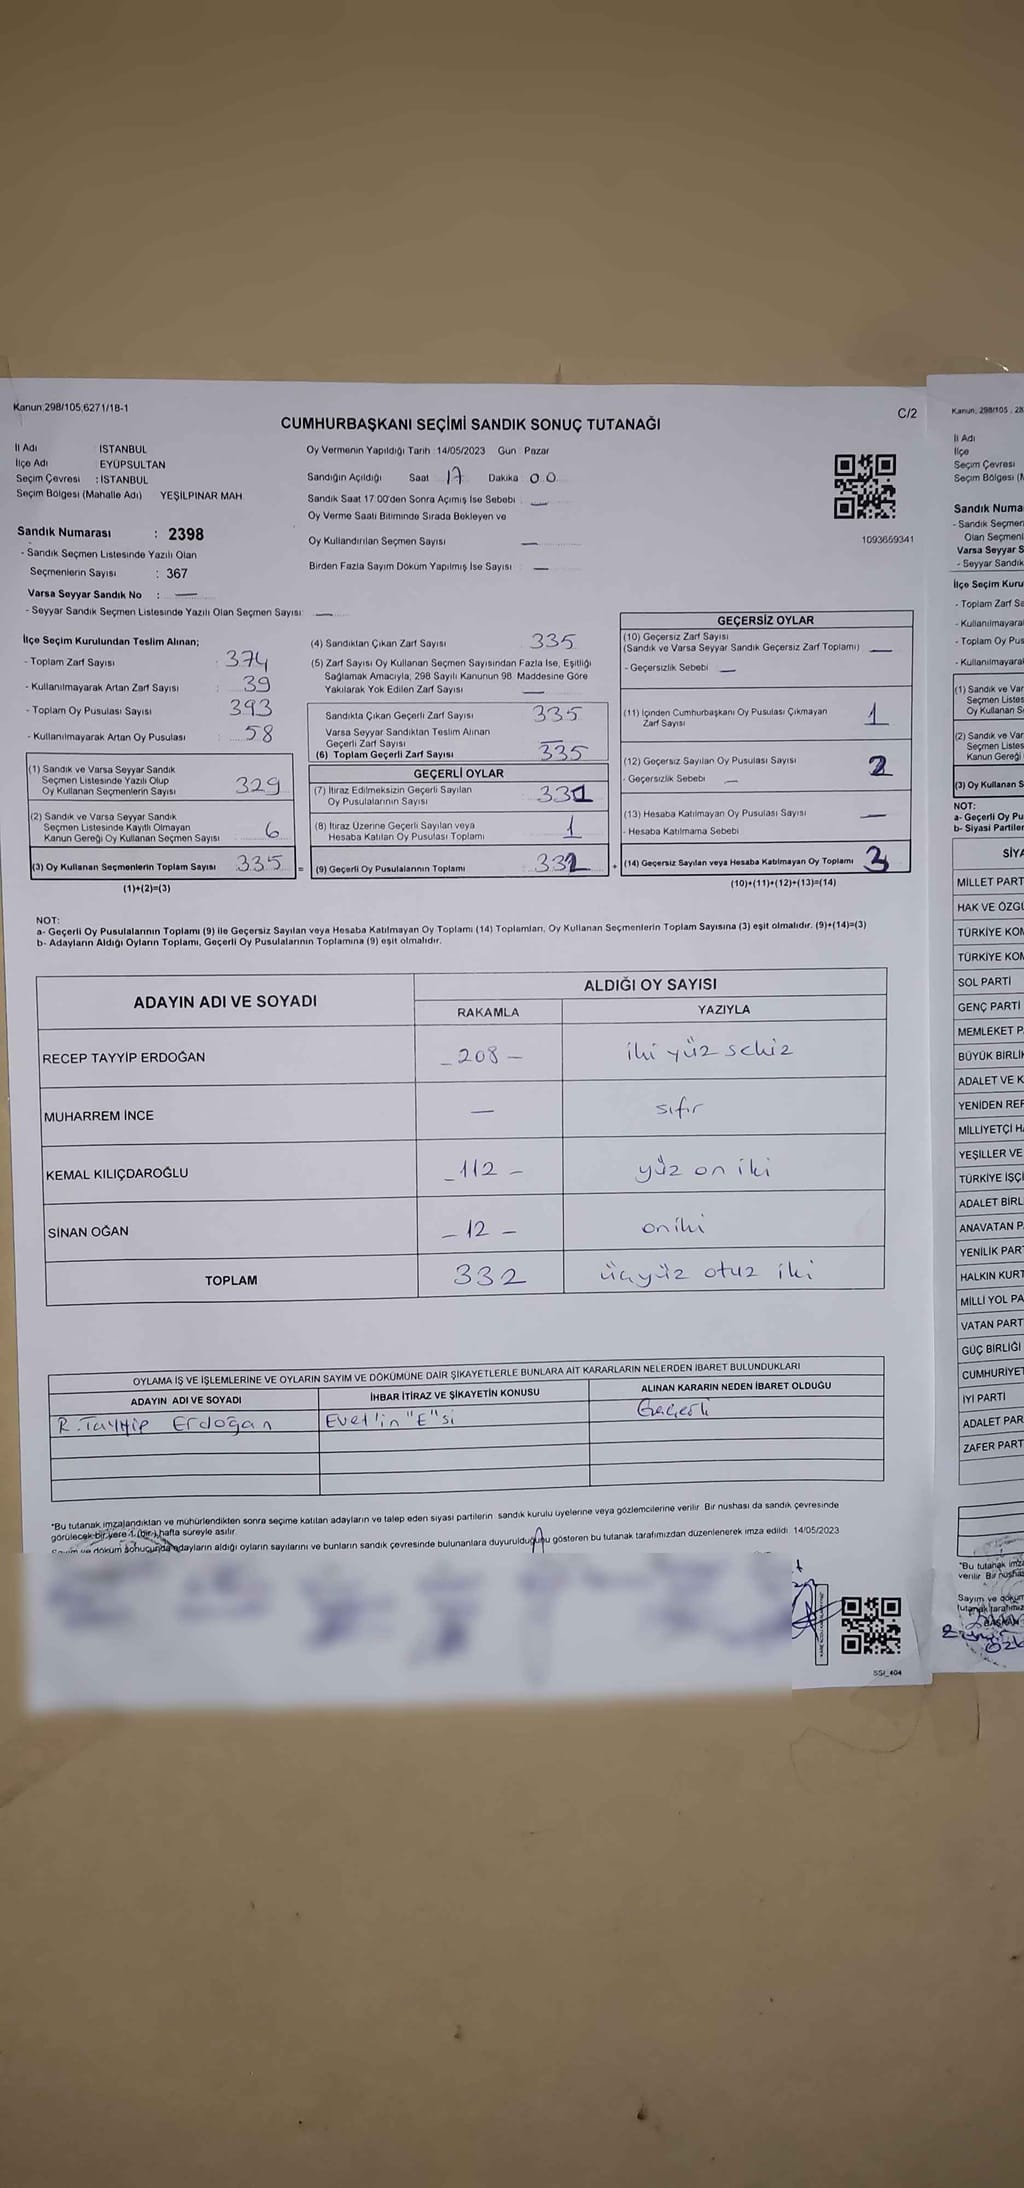 Kanun:298/105;6271/18-1
C/2
CUMHURBAŞKANI SEÇİMİ SANDIK SONUÇ TUTANAĞI
İl Adı : İSTANBUL
İlçe Adı : EYÜPSULTAN
Seçim Çevresi : İSTANBUL
Seçim Bölgesi (Mahalle Adı) YEŞİLPINAR MAH.
Sandık Numarası : 2398
- Sandık Seçmen Listesinde Yazılı Olan
Seçmenlerin Sayısı : 367
Varsa Seyyar Sandık No : —
- Seyyar Sandık Seçmen Listesinde Yazılı Olan Seçmen Sayısı: —
Oy Vermenin Yapıldığı Tarih : 14/05/2023 Gün : Pazar
Sandığın Açıldığı Saat 17 Dakika 00
Sandık Saat 17:00'den Sonra Açımış İse Sebebi : —
Oy Verme Saati Bitiminde Sırada Bekleyen ve
Oy Kullandırılan Seçmen Sayısı —
Birden Fazla Sayım Döküm Yapılmış İse Sayısı : —
1093659341
İlçe Seçim Kurulundan Teslim Alınan;
- Toplam Zarf Sayısı : 374
- Kullanılmayarak Artan Zarf Sayısı : 39
- Toplam Oy Pusulası Sayısı : 393
- Kullanılmayarak Artan Oy Pusulası : 58
(1) Sandık ve Varsa Seyyar Sandık
Seçmen Listesinde Yazılı Olup
Oy Kullanan Seçmenlerin Sayısı 329
(2) Sandık ve Varsa Seyyar Sandık
Seçmen Listesinde Kayıtlı Olmayan
Kanun Gereği Oy Kullanan Seçmen Sayısı 6
(3) Oy Kullanan Seçmenlerin Toplam Sayısı 335
(1)+(2)=(3)
(4) Sandıktan Çıkan Zarf Sayısı 335
(5) Zarf Sayısı Oy Kullanan Seçmen Sayısından Fazla İse, Eşitliği
Sağlamak Amacıyla, 298 Sayılı Kanunun 98. Maddesine Göre
Yakılarak Yok Edilen Zarf Sayısı —
Sandıkta Çıkan Geçerli Zarf Sayısı 335
Varsa Seyyar Sandıktan Teslim Alınan
Geçerli Zarf Sayısı —
(6) Toplam Geçerli Zarf Sayısı 335
GEÇERLİ OYLAR
(7) İtiraz Edilmeksizin Geçerli Sayılan
Oy Pusulalarının Sayısı 331
(8) İtiraz Üzerine Geçerli Sayılan veya
Hesaba Katılan Oy Pusulası Toplamı 1
= (9) Geçerli Oy Pusulalarının Toplamı 332
GEÇERSİZ OYLAR
(10) Geçersiz Zarf Sayısı
(Sandık ve Varsa Seyyar Sandık Geçersiz Zarf Toplamı) —
- Geçersizlik Sebebi —
(11) İçinden Cumhurbaşkanı Oy Pusulası Çıkmayan
Zarf Sayısı 1
(12) Geçersiz Sayılan Oy Pusulası Sayısı 2
- Geçersizlik Sebebi —
(13) Hesaba Katılmayan Oy Pusulası Sayısı —
- Hesaba Katılmama Sebebi
+ (14) Geçersiz Sayılan veya Hesaba Katılmayan Oy Toplamı 3
(10)+(11)+(12)+(13)=(14)
NOT:
a- Geçerli Oy Pusulalarının Toplamı (9) ile Geçersiz Sayılan veya Hesaba Katılmayan Oy Toplamı (14) Toplamları, Oy Kullanan Seçmenlerin Toplam Sayısına (3) eşit olmalıdır. (9)+(14)=(3)
b- Adayların Aldığı Oyların Toplamı, Geçerli Oy Pusulalarının Toplamına (9) eşit olmalıdır.
ADAYIN ADI VE SOYADI ALDIĞI OY SAYISI
RAKAMLA YAZIYLA
RECEP TAYYİP ERDOĞAN - 208 - iki yüz sekiz
MUHARREM İNCE — sıfır
KEMAL KILIÇDAROĞLU - 112 - yüz on iki
SİNAN OĞAN - 12 - oniki
TOPLAM 332 üçyüz otuz iki
OYLAMA İŞ VE İŞLEMLERİNE VE OYLARIN SAYIM VE DÖKÜMÜNE DAİR ŞİKAYETLERLE BUNLARA AİT KARARLARIN NELERDEN İBARET BULUNDUKLARI
ADAYIN ADI VE SOYADI İHBAR İTİRAZ VE ŞİKAYETİN KONUSU ALINAN KARARIN NEDEN İBARET OLDUĞU
R. Tayyip Erdoğan Evet'in "E"si Geçerli
*Bu tutanak imzalandıktan ve mühürlendikten sonra seçime katılan adayların ve talep eden siyasi partilerin sandık kurulu üyelerine veya gözlemcilerine verilir. Bir nushası da sandık çevresinde
görülecek bir yere 1 (bir) hafta süreyle asılır.
Sayım ve döküm sonucunda adayların aldığı oyların sayılarını ve bunların sandık çevresinde bulunanlara duyurulduğunu gösteren bu tutanak tarafımızdan düzenlenerek imza edildi. 14/05/2023
SSİ_404
Kanun: 298/105 , 28
İl Adı
İlçe
Seçim Çevresi
Seçim Bölgesi (M
Sandık Numa
- Sandık Seçmen
Olan Seçmenl
Varsa Seyyar S
- Seyyar Sandık
İlçe Seçim Kuru
- Toplam Zarf Sa
- Kullanılmayara
- Toplam Oy Pus
- Kullanılmayara
(1) Sandık ve Var
Seçmen Listes
Oy Kullanan S
(2) Sandık ve Var
Seçmen Listes
Kanun Gereği
(3) Oy Kullanan S
NOT:
a- Geçerli Oy Pu
b- Siyasi Partiler
SİYA
MİLLET PART
HAK VE ÖZGÜ
TÜRKİYE KOM
TÜRKİYE KOM
SOL PARTİ
GENÇ PARTİ
MEMLEKET P
BÜYÜK BİRLİK
ADALET VE K
YENİDEN REF
MİLLİYETÇİ H
YEŞİLLER VE
TÜRKİYE İŞÇİ
ADALET BİRL
ANAVATAN P
YENİLİK PAR
HALKIN KURT
MİLLİ YOL PA
VATAN PART
GÜÇ BİRLİĞİ
CUMHURİYET
İYİ PARTİ
ADALET PAR
ZAFER PART
*Bu tutanak imza
verilir. Bir nushas
Sayım ve döküm
tutanak tarafımız
BAŞKAN